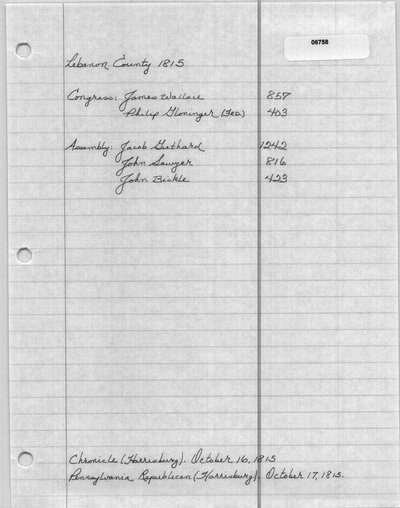 06758
Lebanon County 1815
Congress: James Wallace 857
Philip Gloninger (FED.) 403
Assembly: Jacob Guthard 1242
John Sawyer 816
John Bickle 423
Chronicle (Harrisburg). October 16, 1815
Pennsylvania Republican (Harrisburg). October 17, 1815.